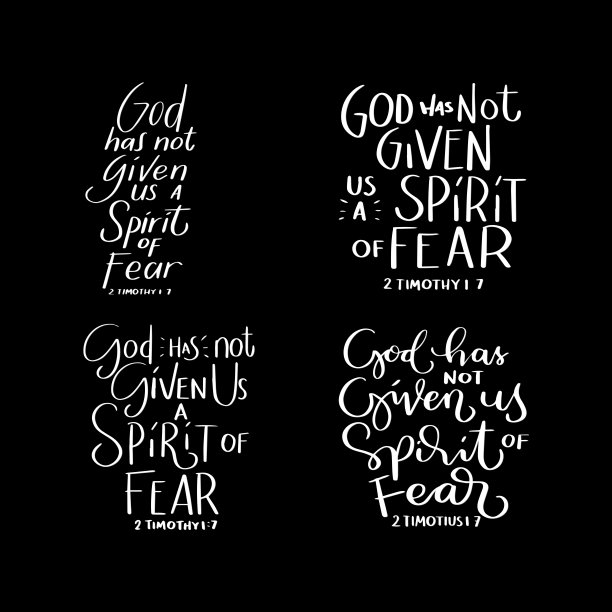 God
has not
Given
us A
Spirit
OF
Fear
2 TIMOTHY 1 7
GOD HAS Not
GIVEN
US
A SPIRIT
OF FEAR
2 TIMOTHY 1 7
God HAS not
GIVEN Us
A
SPIRIT OF
FEAR
2 TIMOTHY 1:7
God has
NOT
Given us
Spirit OF
Fear
2 TIMOTIUS 1 7